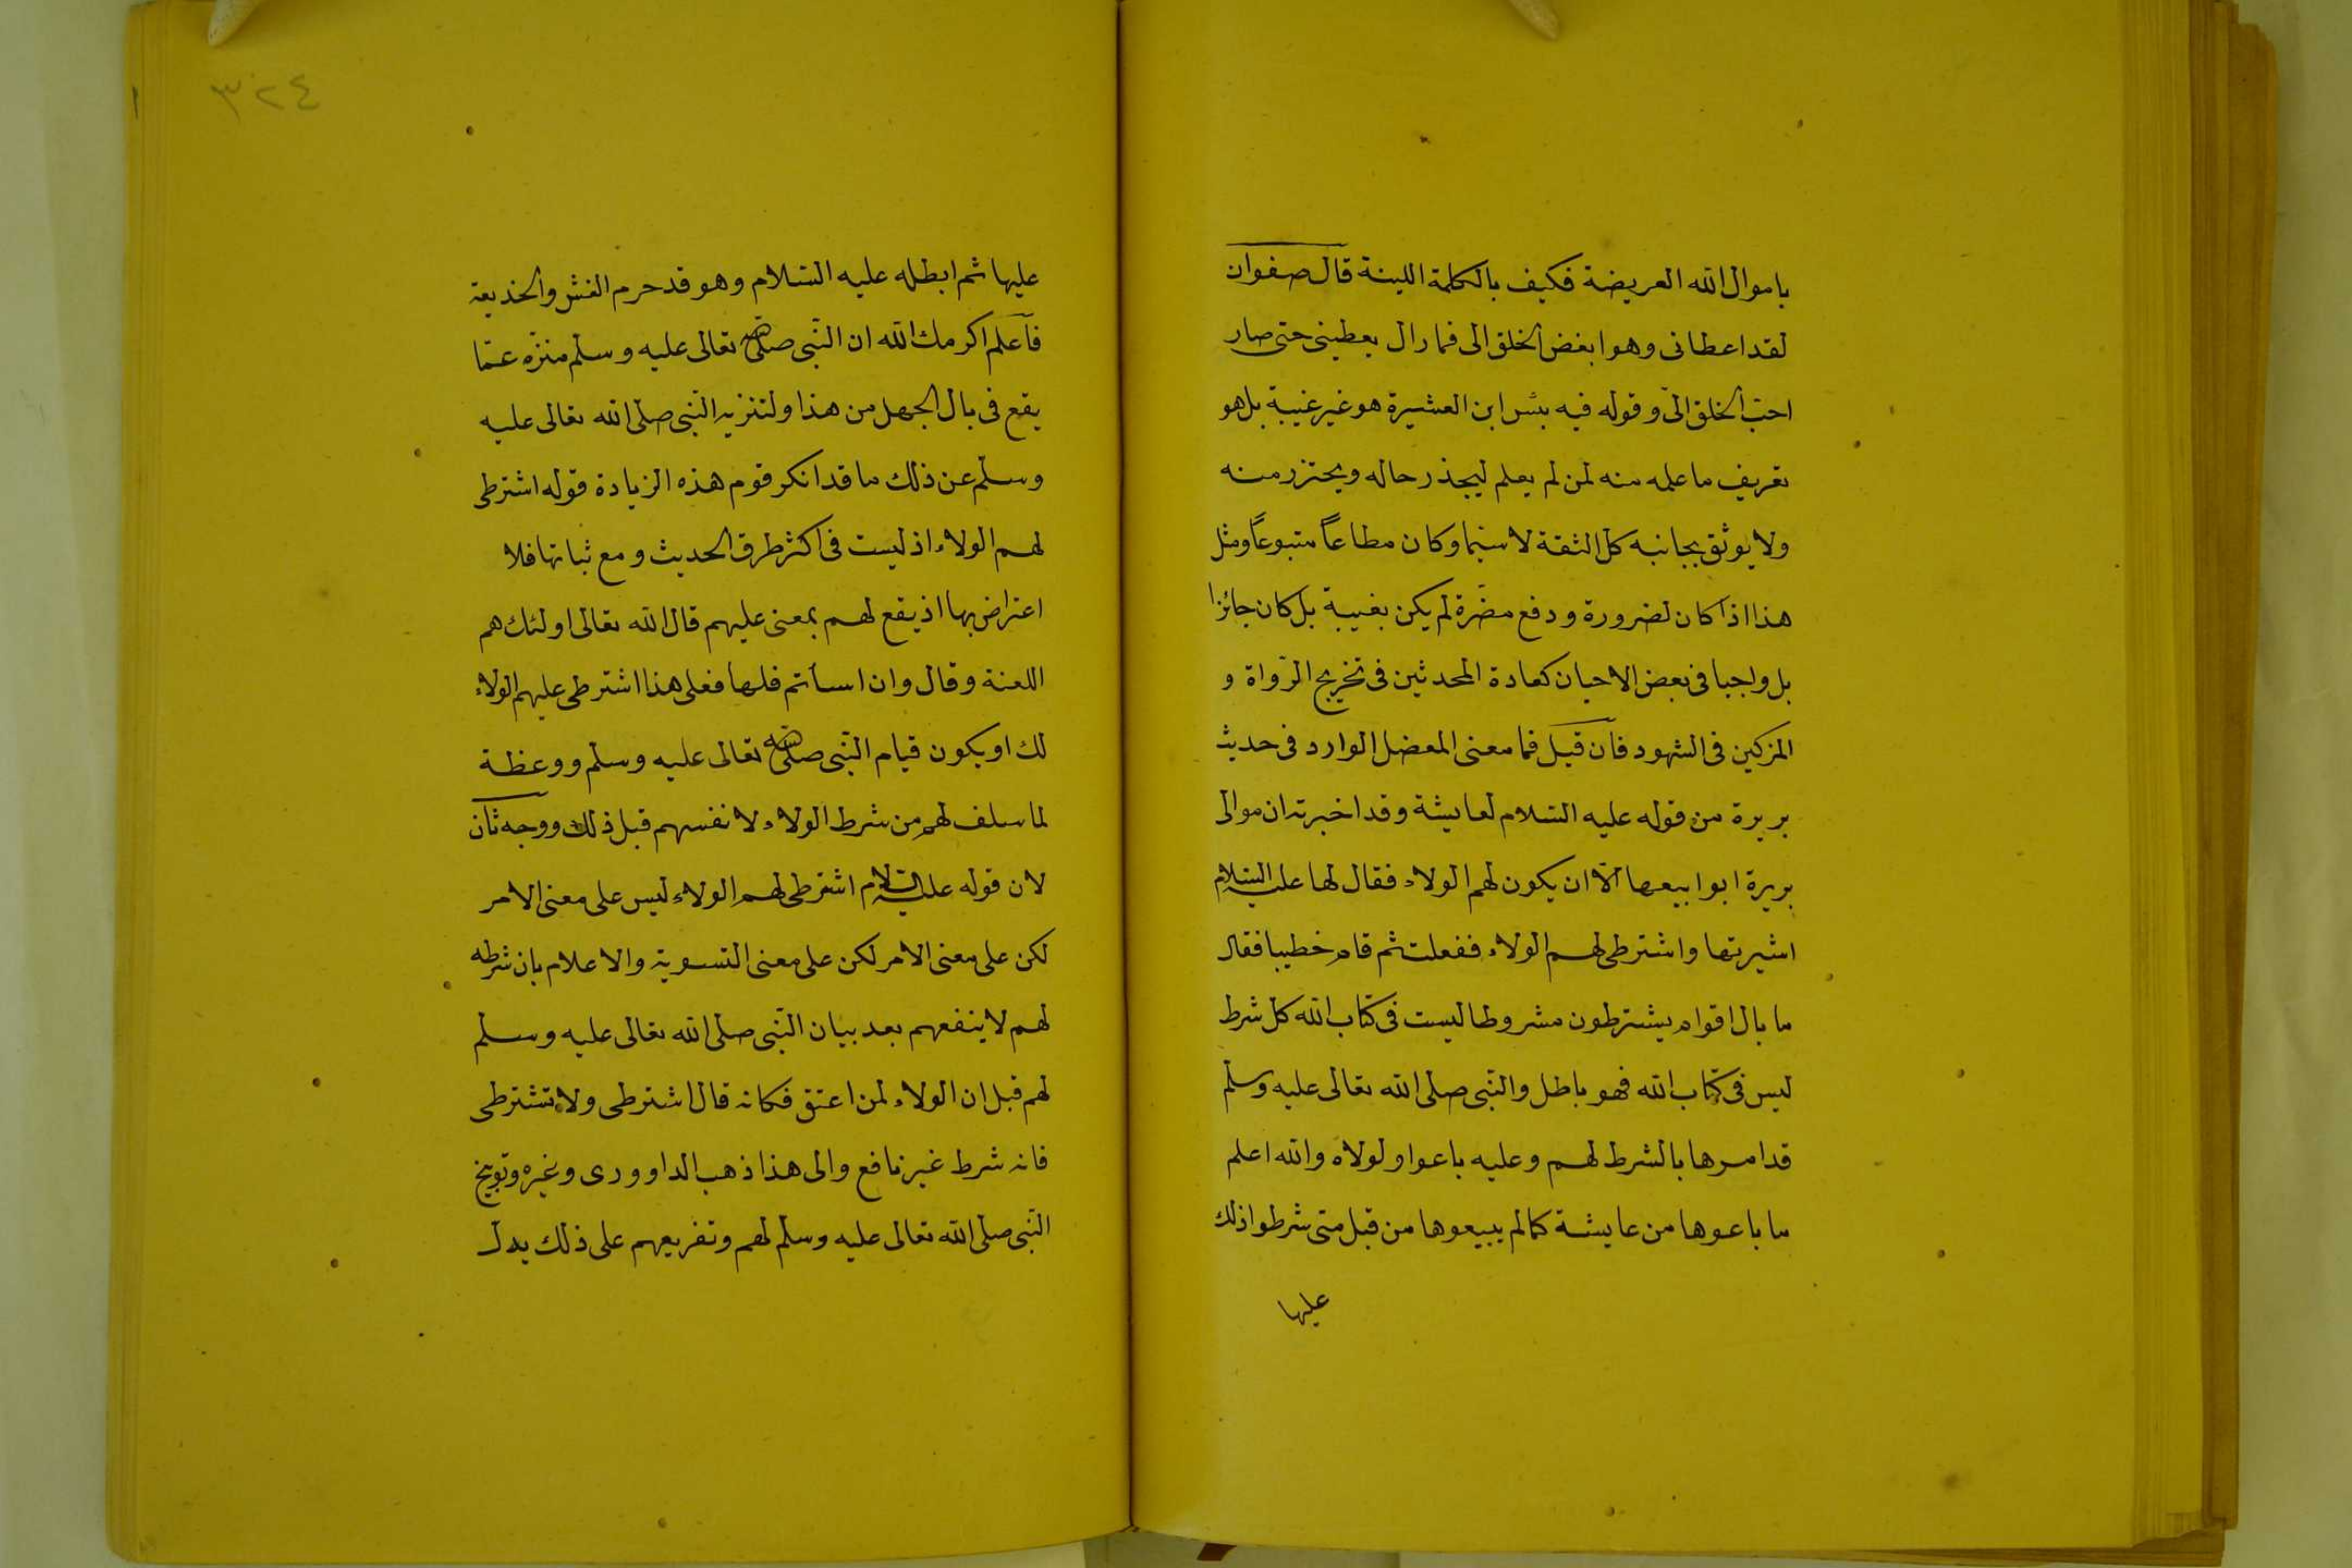 باموال الله العريضة فكيف بالكلمة اللينة قال صفوان
لقد اعطانى وهو ابغض الخلق الى فما زال يعطينى حتى صار
احبّ الخلق الىّ وقوله فيه بئس ابن العشيرة هو غير غيبة بل هو
تعريف ما علمه منه لمن لم يعلم ليحذر حاله ويحترز منه
ولا يوثق بجانبه كل الثقة لا سيّما وكان مطاعاً متبوعاً ومثل
هذا اذا كان لضرورة ودفع مضرّة لم يكن بغيبة بل كان جائزا
بل واجبا فى بعض الاحيان كعادة المحدثين فى تخريج الرّواة و
المزكين فى الشهود فان قيل فما معنى المعضل الوارد فى حديث
بريرة من قوله عليه السّلام لعايشة وقد اخبرته ان موالى
بريرة ابوا بيعها الّا ان يكون لهم الولاء فقال لها عليه السّلام
اشيرتها واشترطى لهم الولاء ففعلت ثم قام خطيبا فقال
ما بال اقوام يشترطون مشروطا ليست فى كتاب الله كل شرط
ليس فى كتاب الله فهو باطل والنّبى صلى الله تعالى عليه وسلّم
قد امرها بالشرط لهم وعليه باعوا ولولاه والله اعلم
ما باعوها من عايشة كما لم يبيعوها من قبل متى شرطوا ذلك
عليها
٣٢٤
عليها ثم ابطله عليه السّلام وهو قد حرم الغش والخديعة
فاعلم اكرمك الله ان النّبى صلى الله تعالى عليه وسلّم منزّه عمّا
يقع فى بال الجهل من هذا ولتنزيه النّبى صلّى الله تعالى عليه
وسلّم عن ذلك ما قد انكر قوم هذه الزيادة قوله اشترطى
لهم الولاء اذ ليست فى اكثر طرق الحديث ومع ثباتها فلا
اعتراض بها اذ يقع لهم بمعنى عليهم قال الله تعالى اولئك هم
اللعنة وقال وان اسأتم فلها فعلى هذا اشترطى عليهم الولاء
لك او يكون قيام النّبى صلى الله تعالى عليه وسلّم ووعظة
لما سلف لهم من شرط الولاء لانفسهم قبل ذلك ووجه ثان
لان قوله عليه السلام اشترطى لهم الولاء ليس على معنى الامر
لكن على معنى الامر لكن على معنى التسوية والاعلام بان شرطه
لهم لا ينفعهم بعد بيان النّبى صلّى الله تعالى عليه وسلّم
لهم قبل ان الولاء لمن اعتق فكانه قال اشترطى ولا تشترطى
فانه شرط غير نافع والى هذا ذهب الداوودى وغيره وتوبيخ
النّبى صلّى الله تعالى عليه وسلّم لهم وتفريعهم على ذلك يدل